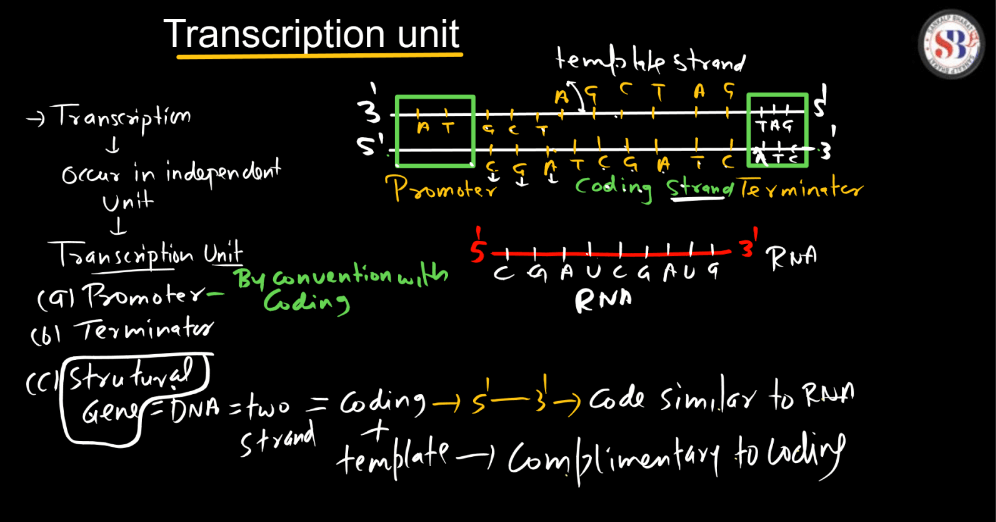 Transcription unit
SB
template strand
A G C T A G
3' 5'
A T G C T TAG
5' 3'
G G A T C G A T C ATC
Promoter Coding Strand Terminater
→ Transcription
↓
Occur in independent
Unit
↓
Transcription Unit
5' 3' RNA
C G A U C G A U G
RNA
(a) Promoter – By convention with
Coding
(b) Terminater
(C) Strutural
Gene = DNA = two = Coding → 5' — 3' → Code similar to RNA
Strand +
template → Complimentary to Coding